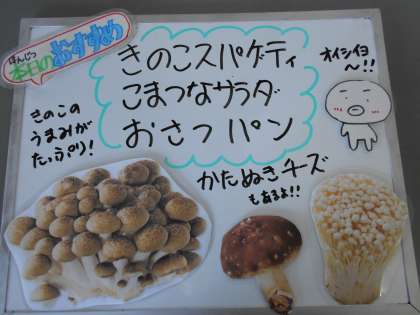 ほんじつ
本日のおすすめ
きのこスパゲティ
こまつなサラダ
おさつパン
オイシイヨ
〜!!
きのこの
うまみが
たっぷり!
かたぬきチーズ
もあるよ!!